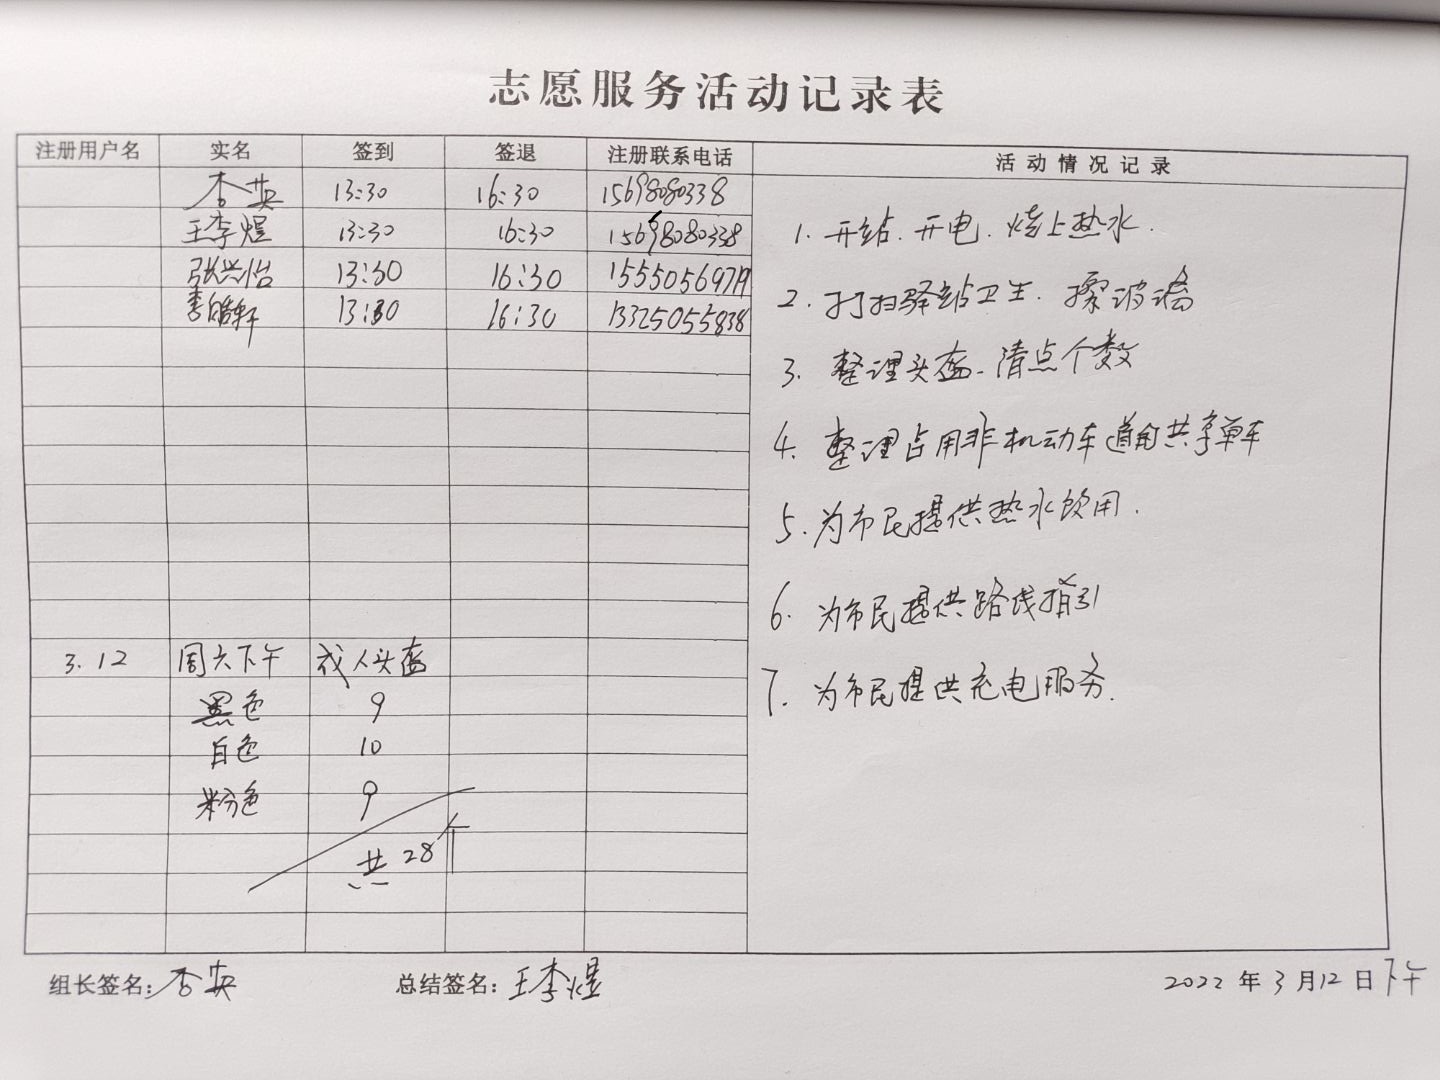 志愿服务活动记录表
注册用户名 实名 签到 签退 注册联系电话 活动情况记录
杏英 13:30 16:30 15698080338
王李煜 13:30 16:30 15698080338
张兴怡 13:30 16:30
李皓轩 13:30 16:30 13325055838
1. 开站. 开电. 烧上热水.
2. 打扫驿站卫生. 擦玻璃
3. 整理头盔. 清点个数
4. 整理占用非机动车道的共享单车
5. 为市民提供热水饮用.
6. 为市民提供路线指引
7. 为市民提供充电服务.
3.12 周六下午 成人头盔
黑色 9
白色 10
粉色 9
共28个
组长签名:杏英 总结签名:王李煜 2022年3月12日下午